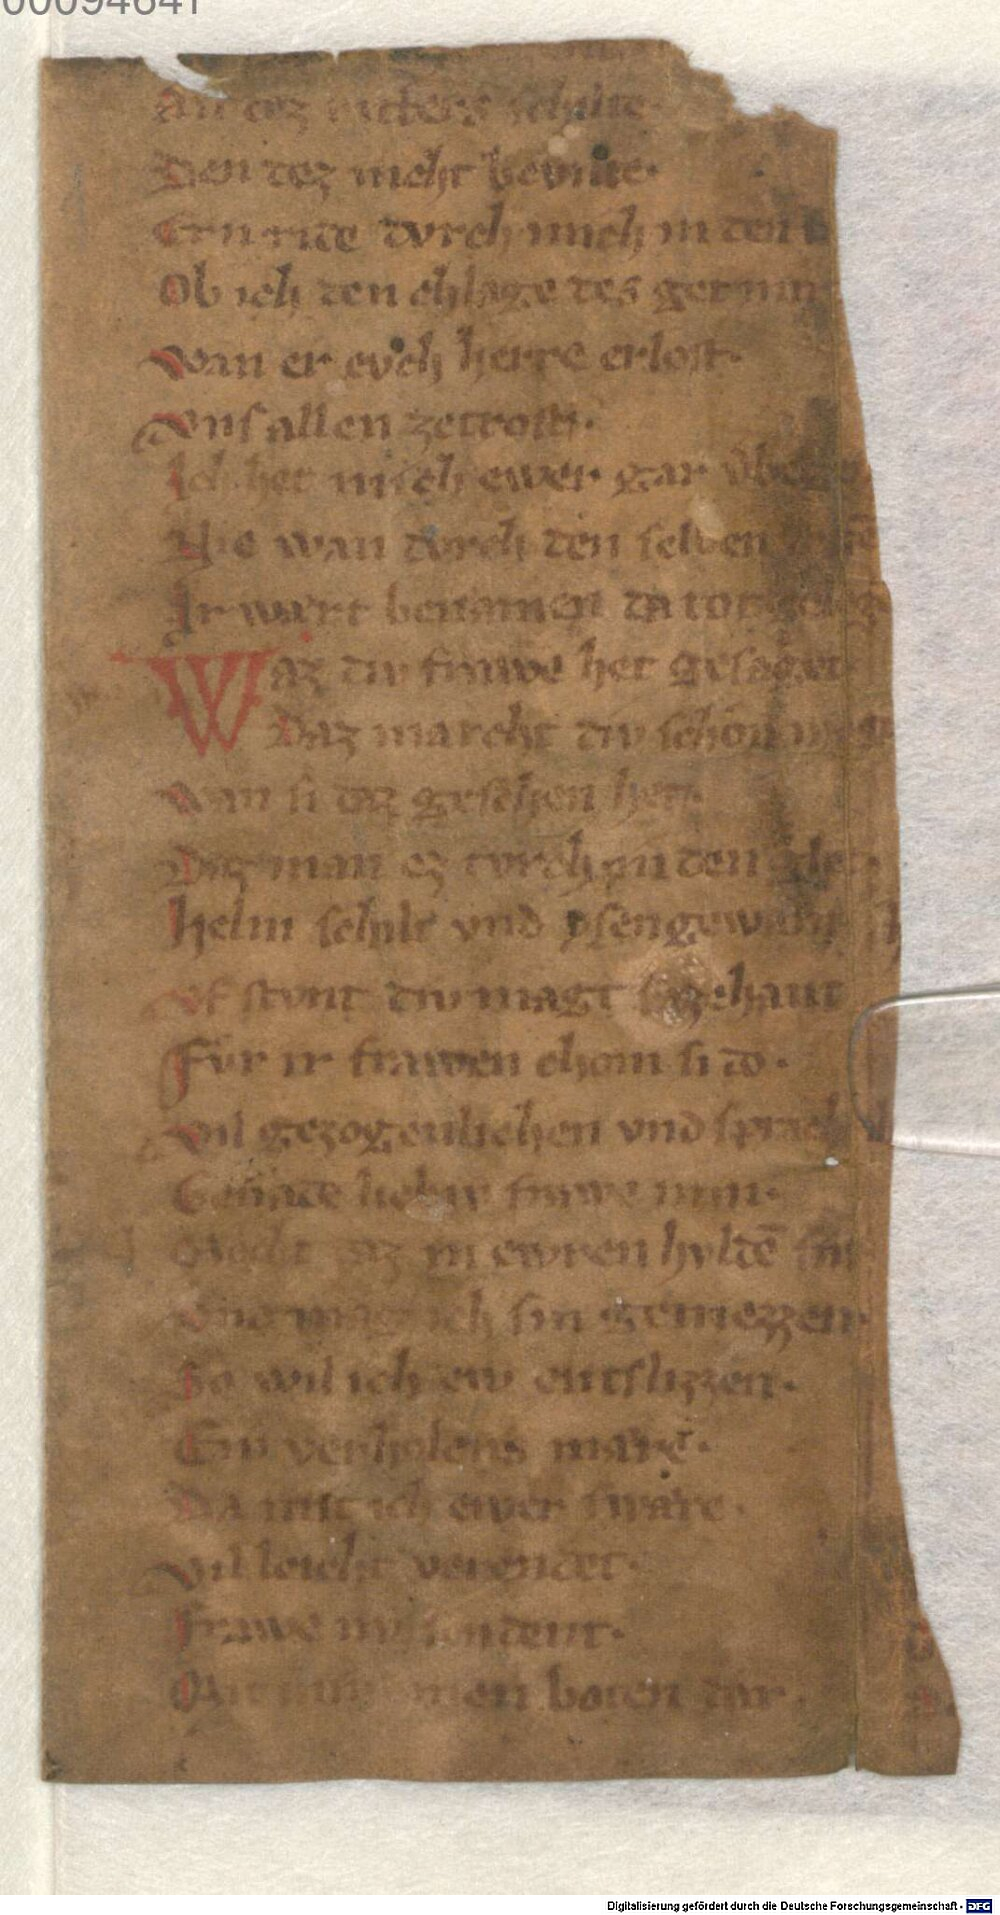 00094641
An dez ritters schulte.
Den dez nicht beuilte.
Ern rite dvrch mich in den
Ob ich den chlage des get
wan er evch herre erlost.
vns allen zetrost.
Ich het mich ewer gar
Nie wan dvrch den selben
Ir wært benamen da tot
Waz div frawe het gesaget.
Daz marcht div schon
wan si daz gesehen het.
Daz man ez dvrch in den
helm schilt vnd ysengewant
vf stvnt div magt sazehant
Fvr ir frawen chom si do.
vil gezogenlichen vnd sprach
Genade liebiv frawe min.
Mocht ez in ewren hvlden sin
vnd mag ich sin geniezzen.
So wil ich ew entslizzen.
Ein verholens mære.
Da mit ich ewer swære.
vil leicht verendet.
frawe nv sendent.
boten dar.
Digitalisierung gefördert durch die Deutsche Forschungsgemeinschaft - DFG